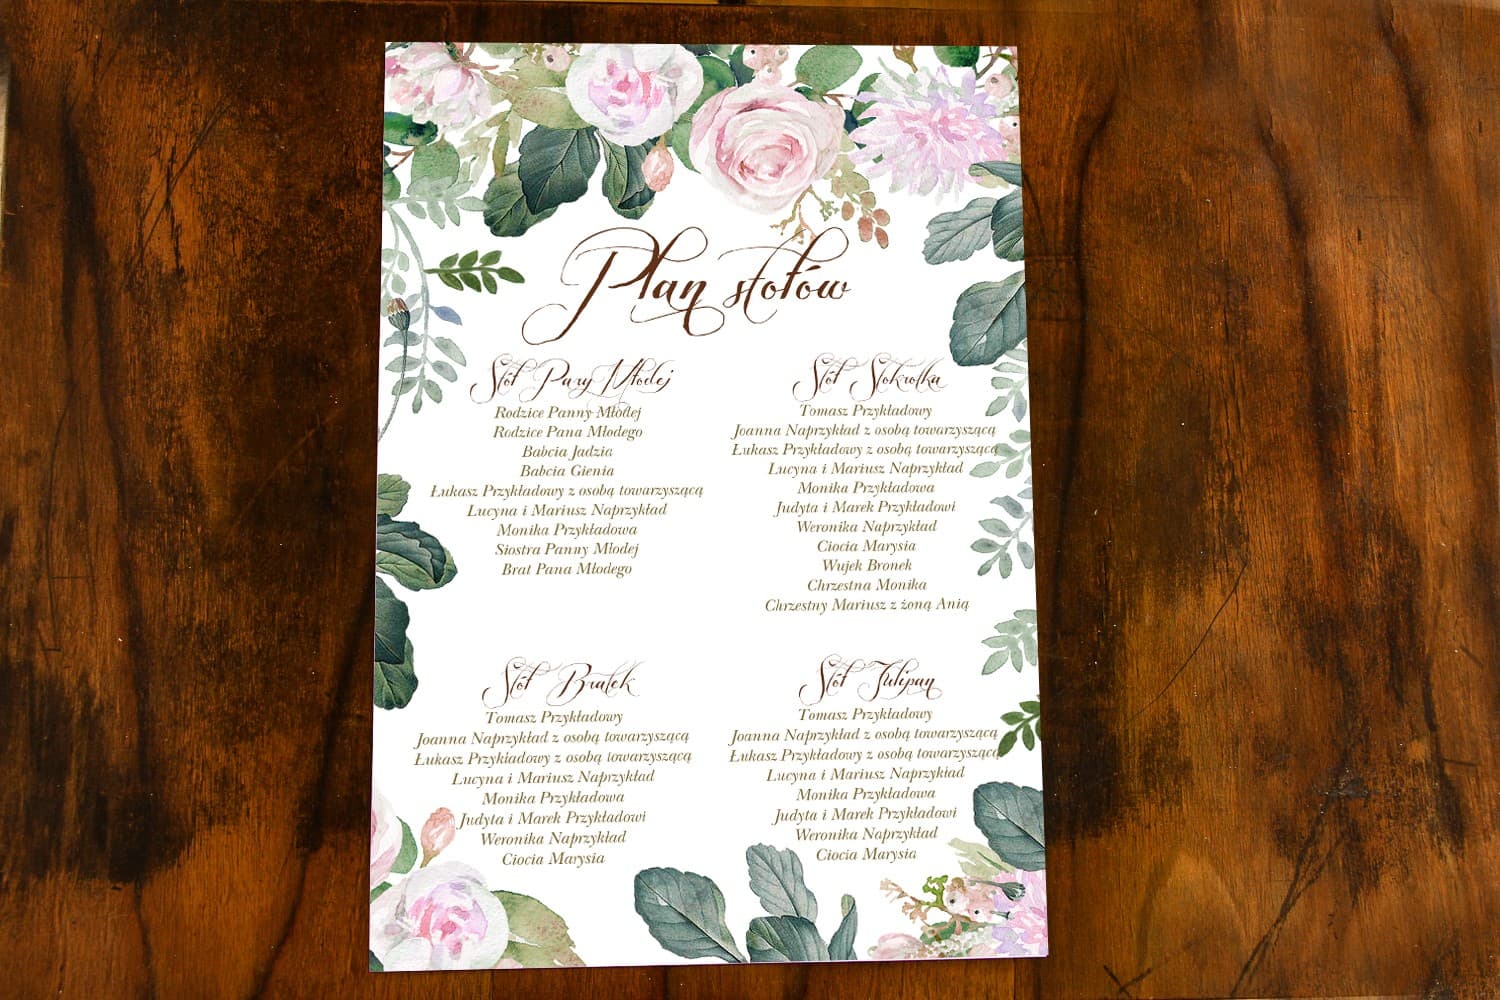 Plan stołów
Stół Pary Młodej
Rodzice Panny Młodej
Rodzice Pana Młodego
Babcia Jadzia
Babcia Gienia
Łukasz Przykładowy z osobą towarzyszącą
Lucyna i Mariusz Naprzykład
Monika Przykładowa
Siostra Panny Młodej
Brat Pana Młodego
Stół Stokrotka
Tomasz Przykładowy
Joanna Naprzykład z osobą towarzyszącą
Łukasz Przykładowy z osobą towarzyszącą
Lucyna i Mariusz Naprzykład
Monika Przykładowa
Judyta i Marek Przykładowi
Weronika Naprzykład
Ciocia Marysia
Wujek Bronek
Chrzestna Monika
Chrzestny Mariusz z żoną Anią
Stół Bratek
Tomasz Przykładowy
Joanna Naprzykład z osobą towarzyszącą
Łukasz Przykładowy z osobą towarzyszącą
Lucyna i Mariusz Naprzykład
Monika Przykładowa
Judyta i Marek Przykładowi
Weronika Naprzykład
Ciocia Marysia
Stół Tulipan
Tomasz Przykładowy
Joanna Naprzykład z osobą towarzyszącą
Łukasz Przykładowy z osobą towarzyszącą
Lucyna i Mariusz Naprzykład
Monika Przykładowa
Judyta i Marek Przykładowi
Weronika Naprzykład
Ciocia Marysia